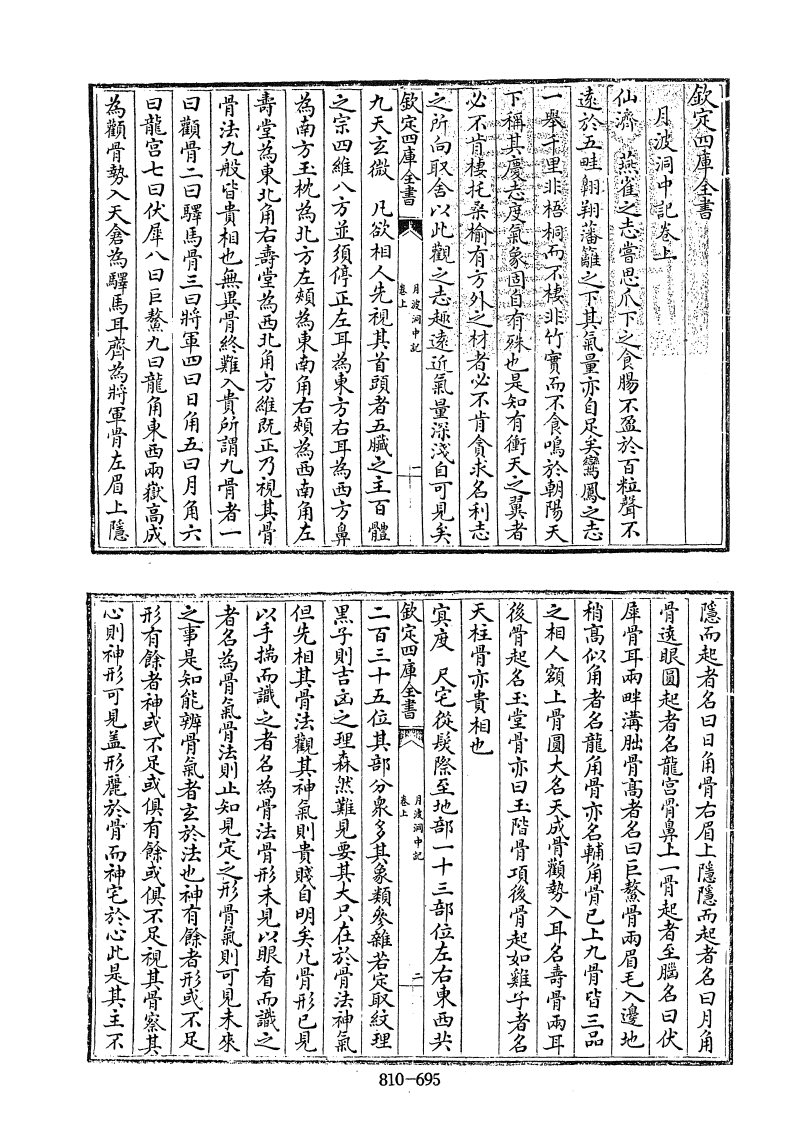 欽定四庫全書
月波洞中記卷上
仙濟 燕雀之志嘗思爪下之食腸不盈於百粒聲不
遠於五畦翺翔藩籬之下其氣量亦自足矣鸞鳳之志
一舉千里非梧桐而不棲非竹實而不食鳴於朝陽天
下稱其慶志度氣象固自有殊也是知有衝天之翼者
必不肯棲托桑榆有方外之材者必不肯貪求名利志
之所向取舍以此觀之志趣遠近氣量深淺自可見矣
欽定四庫全書
月波洞中記
卷上
一
九天玄微 凡欲相人先視其首頭者五臟之主百體
之宗四維八方並須停正左耳為東方右耳為西方鼻
為南方玉枕為北方左頰為東南角右頰為西南角左
壽堂為東北角右壽堂為西北角方維既正乃視其骨
骨法九般皆貴相也無異骨終難入貴所謂九骨者一
曰顴骨二曰驛馬骨三曰將軍四曰日角五曰月角六
曰龍宮七曰伏犀八曰巨鼇九曰龍角東西兩嶽高成
為顴骨勢入天倉為驛馬耳齊為將軍骨左眉上隱
隱而起者名曰日角骨右眉上隱隱而起者名曰月角
骨遶眼圓起者名龍宮骨鼻上一骨起者至腦名曰伏
犀骨耳兩畔溝朏骨高者名曰巨鼇骨兩眉毛入邊地
稍高似角者名龍角骨亦名輔角骨已上九骨皆三品
之相人額上骨圓大名天成骨顴勢入耳名壽骨兩耳
後骨起名玉堂骨亦曰玉階骨項後骨起如雞子者名
天柱骨亦貴相也
寘度 尺宅從髮際至地部一十三部位左右東西共
欽定四庫全書
月波洞中記
卷上
二
二百三十五位其部分衆多其象類參雜若定取紋理
黑子則吉凶之理森然難見要其大只在於骨法神氣
但先相其骨法觀其神氣則貴賤自明矣凡骨形已見
以手揣而識之者名為骨法骨形未見以眼看而識之
者名為骨氣骨法則止知見定之形骨氣則可見未來
之事是知能辨骨氣者玄於法也神有餘者形或不足
形有餘者神或不足或俱有餘或俱不足視其骨察其
心則神形可見蓋形麗於骨而神宅於心此是其主不
810-695